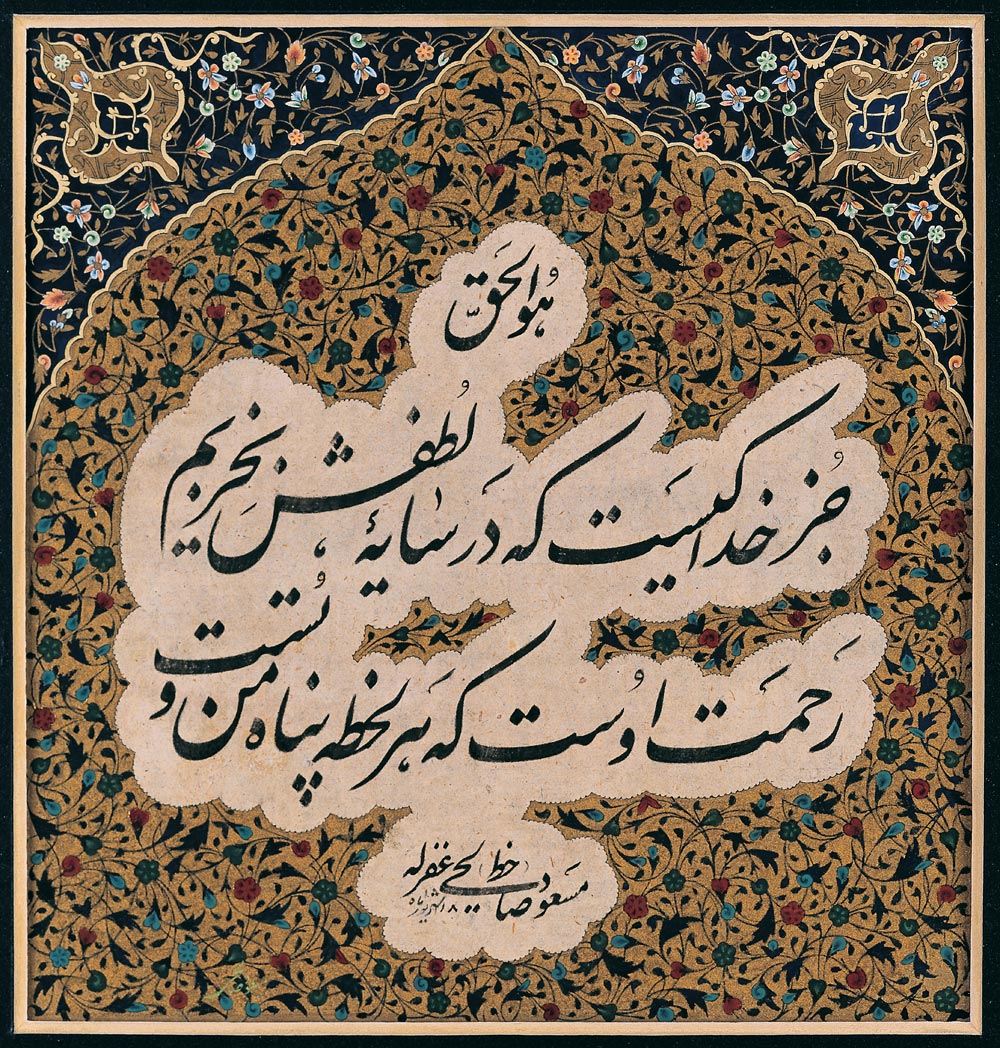 هُو الحقّ
جُز خدا کیست که در سایهٔ لُطفش بخزیم
رحمت اوست که هر لحظه پناه من و تُست
خط
مسعود صالحی غفر له